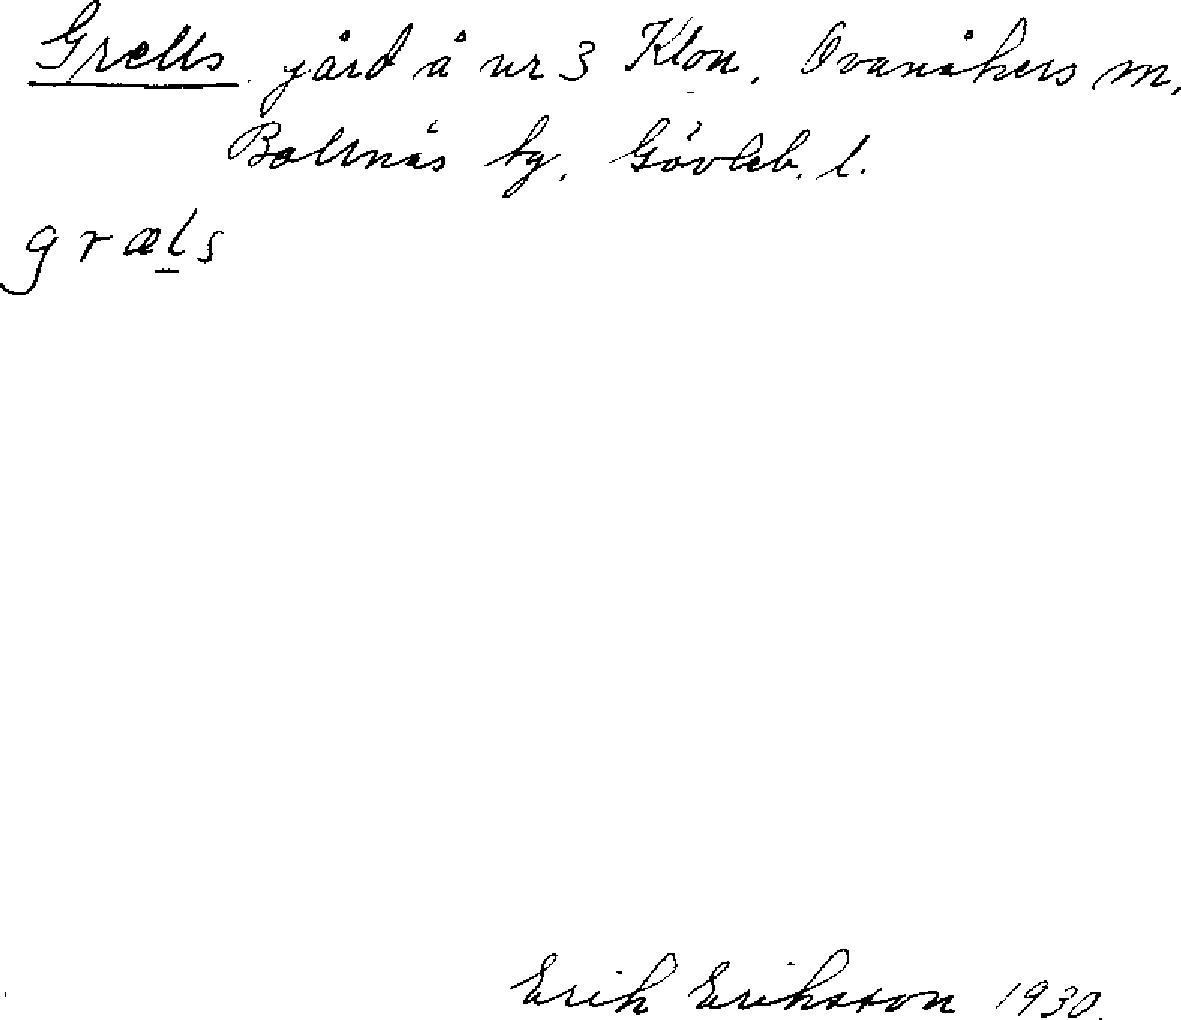 Grells gård å nr 3 Klon, Ovanåkers sn,
Bollnäs tg, Gävleb. l.
græls
Erik Eriksson 1930.